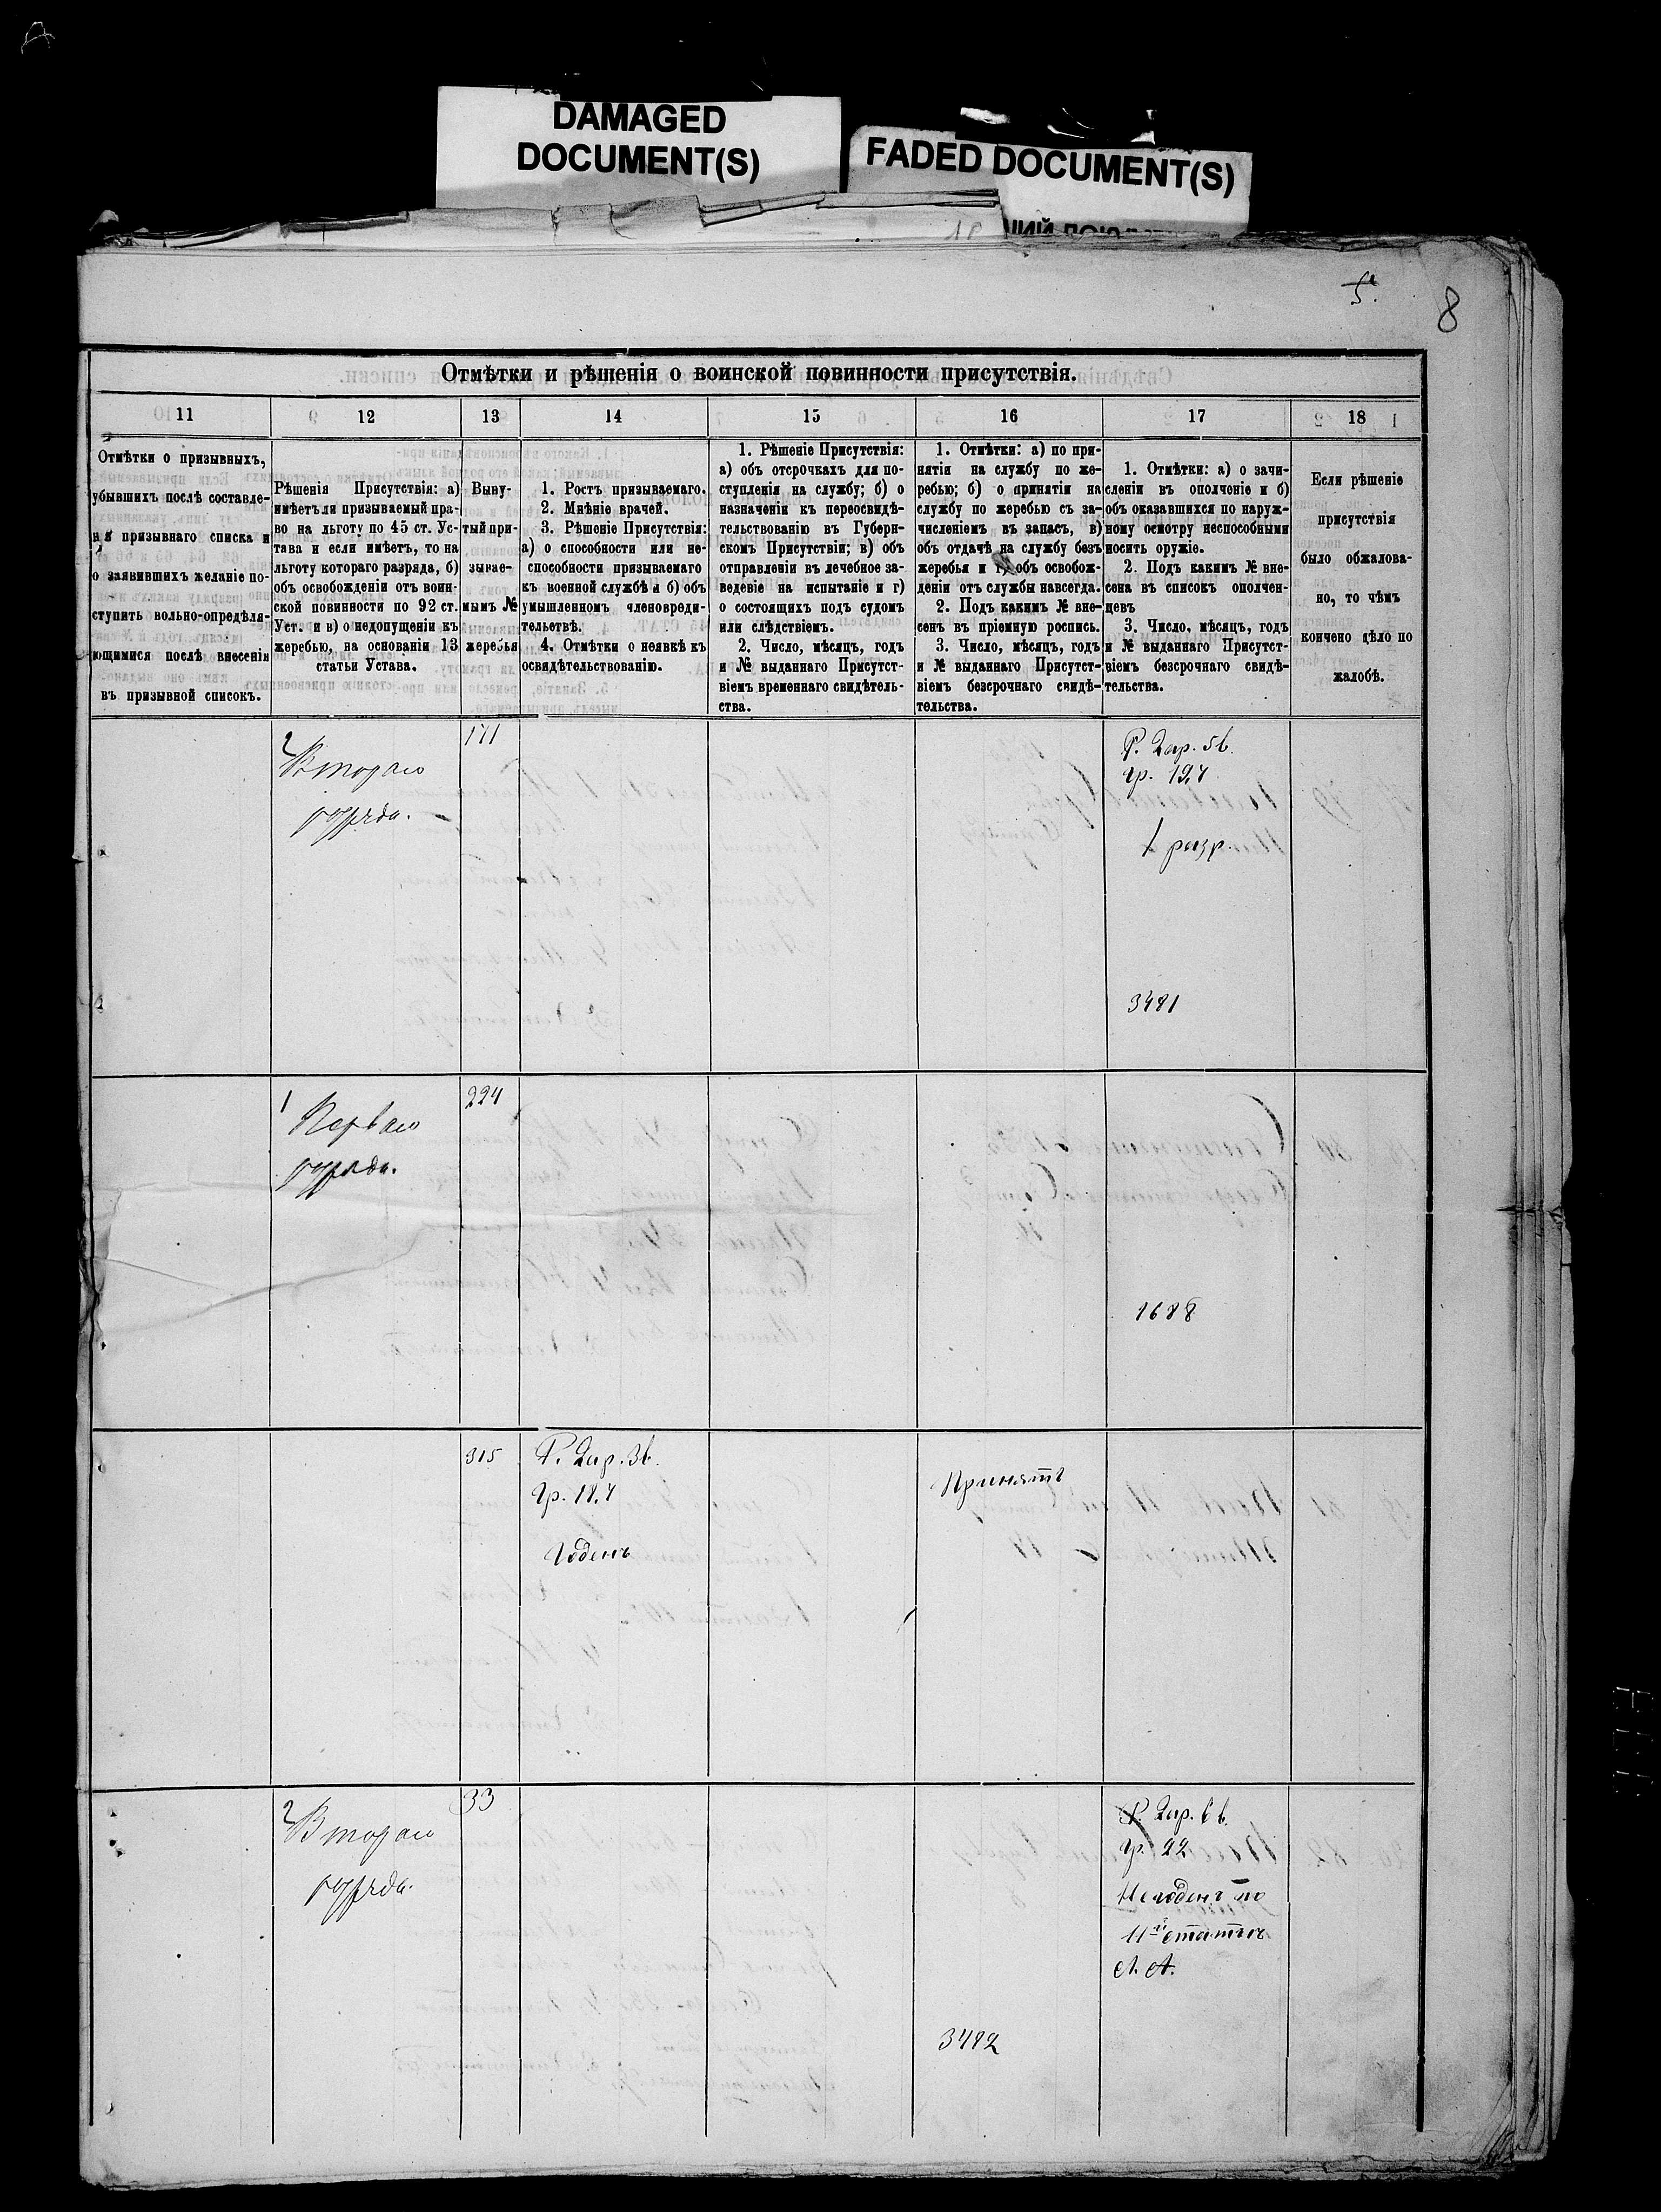 DAMAGED
DOCUMENT(S)
FADED DOCUMENT(S)
5.
8
Отмѣтки и рѣшенія о воинской повинности присутствія.
11
12
13
14
15
16
17
18
Отмѣтки о призывныхъ,
убывшихъ послѣ составле-
нія призывнаго списка и
о заявившихъ желаніе по-
ступить вольно-опредѣля-
ющимися послѣ внесенія
въ призывной списокъ.
Рѣшенія Присутствія: а)
имѣетъ ли призываемый пра-
во на льготу по 45 ст. Ус-
тава и если имѣетъ, то на
льготу котораго разряда, б)
объ освобожденіи отъ воин-
ской повинности по 92 ст.
Уст. и в) о недопущеніи къ
жеребью, на основаніи 13
статьи Устава.
Выну-
тый при-
зывае-
мымъ №
жеребья
1. Ростъ призываемаго.
2. Мнѣніе врачей.
3. Рѣшеніе Присутствія:
а) о способности или не-
способности призываемаго
къ военной службѣ и б) объ
умышленномъ членовреди-
тельствѣ.
4. Отмѣтки о неявкѣ къ
освидѣтельствованію.
1. Рѣшеніе Присутствія:
а) объ отсрочкахъ для по-
ступленія на службу; б) о
назначеніи къ переосвидѣ-
тельствованію въ Губерн-
скомъ Присутствіи; в) объ
отправленіи въ лечебное за-
веденіе на испытаніе и г)
о состоящихъ подъ судомъ
или слѣдствіемъ.
2. Число, мѣсяцъ, годъ
и № выданнаго Присутст-
віемъ временнаго свидѣтель-
ства.
1. Отмѣтки: а) по при-
нятіи на службу по же-
ребью; б) о принятіи на
службу по жеребью съ за-
численіемъ въ запасъ, в)
объ отдачѣ на службу безъ
жеребья и г) объ освобож-
деніи отъ службы навсегда.
2. Подъ какимъ № вне-
сенъ въ пріемную роспись.
3. Число, мѣсяцъ, годъ
и № выданнаго Присутст-
віемъ безсрочнаго свидѣ-
тельства.
1. Отмѣтки: а) о зачи-
сленіи въ ополченіе и б)
объ оказавшихся по наруж-
ному осмотру неспособными
носить оружіе.
2. Подъ какимъ № вне-
сена въ списокъ ополчен-
цевъ
3. Число, мѣсяцъ, годъ
и № выданнаго Присутст-
віемъ безсрочнаго свидѣ-
тельства.
Если рѣшеніе
присутствія
было обжалова-
но, то чѣмъ
кончено дѣло по
жалобѣ.
2
Втораго
разряда.
171
Р. 2 ар. 5 в.
гр. 19,4
1 разр.
3481
1
Перваго
разряда.
224
1688
315
Р. 2 ар. 3 в.
гр. 18,4
Годенъ
Принятъ
2
Втораго
разряда.
33
Р. 2 ар. 6 в.
гр. 22
Негоденъ по
11й статьѣ
Л. А.
3482